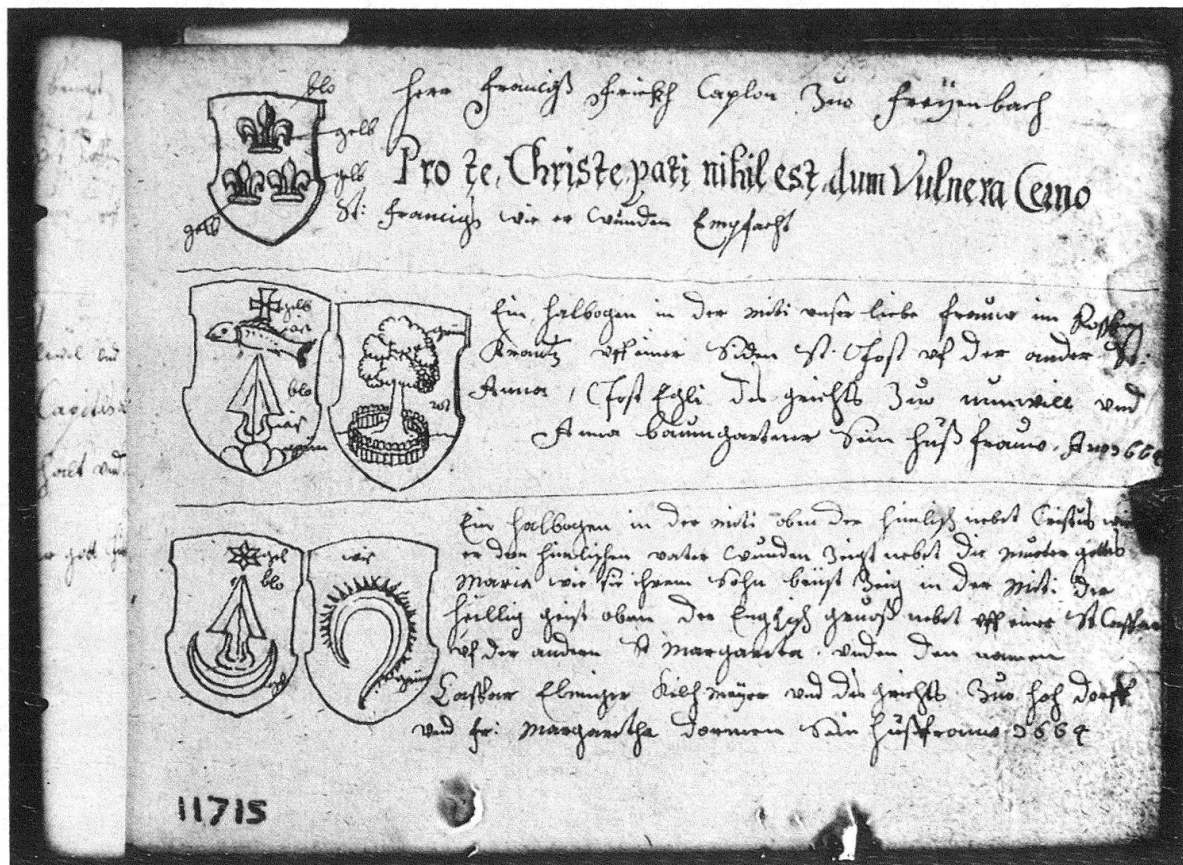 Herr Francisß Frickh Caplon Zuo Freÿenbach
blo
gelb
gelb
gelb
Pro te, Christe pati nihil est dum Vulnera Cerno
St: Francisß wie er wunden Empfacht
Ein halbogen in der miti unser liebe frauw im
Krantz uff einer Siden St. Jost uf der ander St:
Anna, Jost Egli des grichts Zuo nunwill und
Anna baumgartner Sin huß frauw, Ano 1664
gelb
blo
grün
Ein halbogen in der miti oben der nebet Cristus wie
er dem himlischen vater wunden Zeigt nebet die muoter gottes
Maria wie sie ihrem Sohn brüst Zeig in der miti der
heillig geist oben der Englisch gruoß nebet uff einer St Casspar
uf der andern St Margareta, unden den namen
Casspar Elmiger Kilchmeÿer und des grichts Zuo hoh dorff
und fr: Margaretha dormen Sin hußfrauw 1664
gel
blo
grün
11715